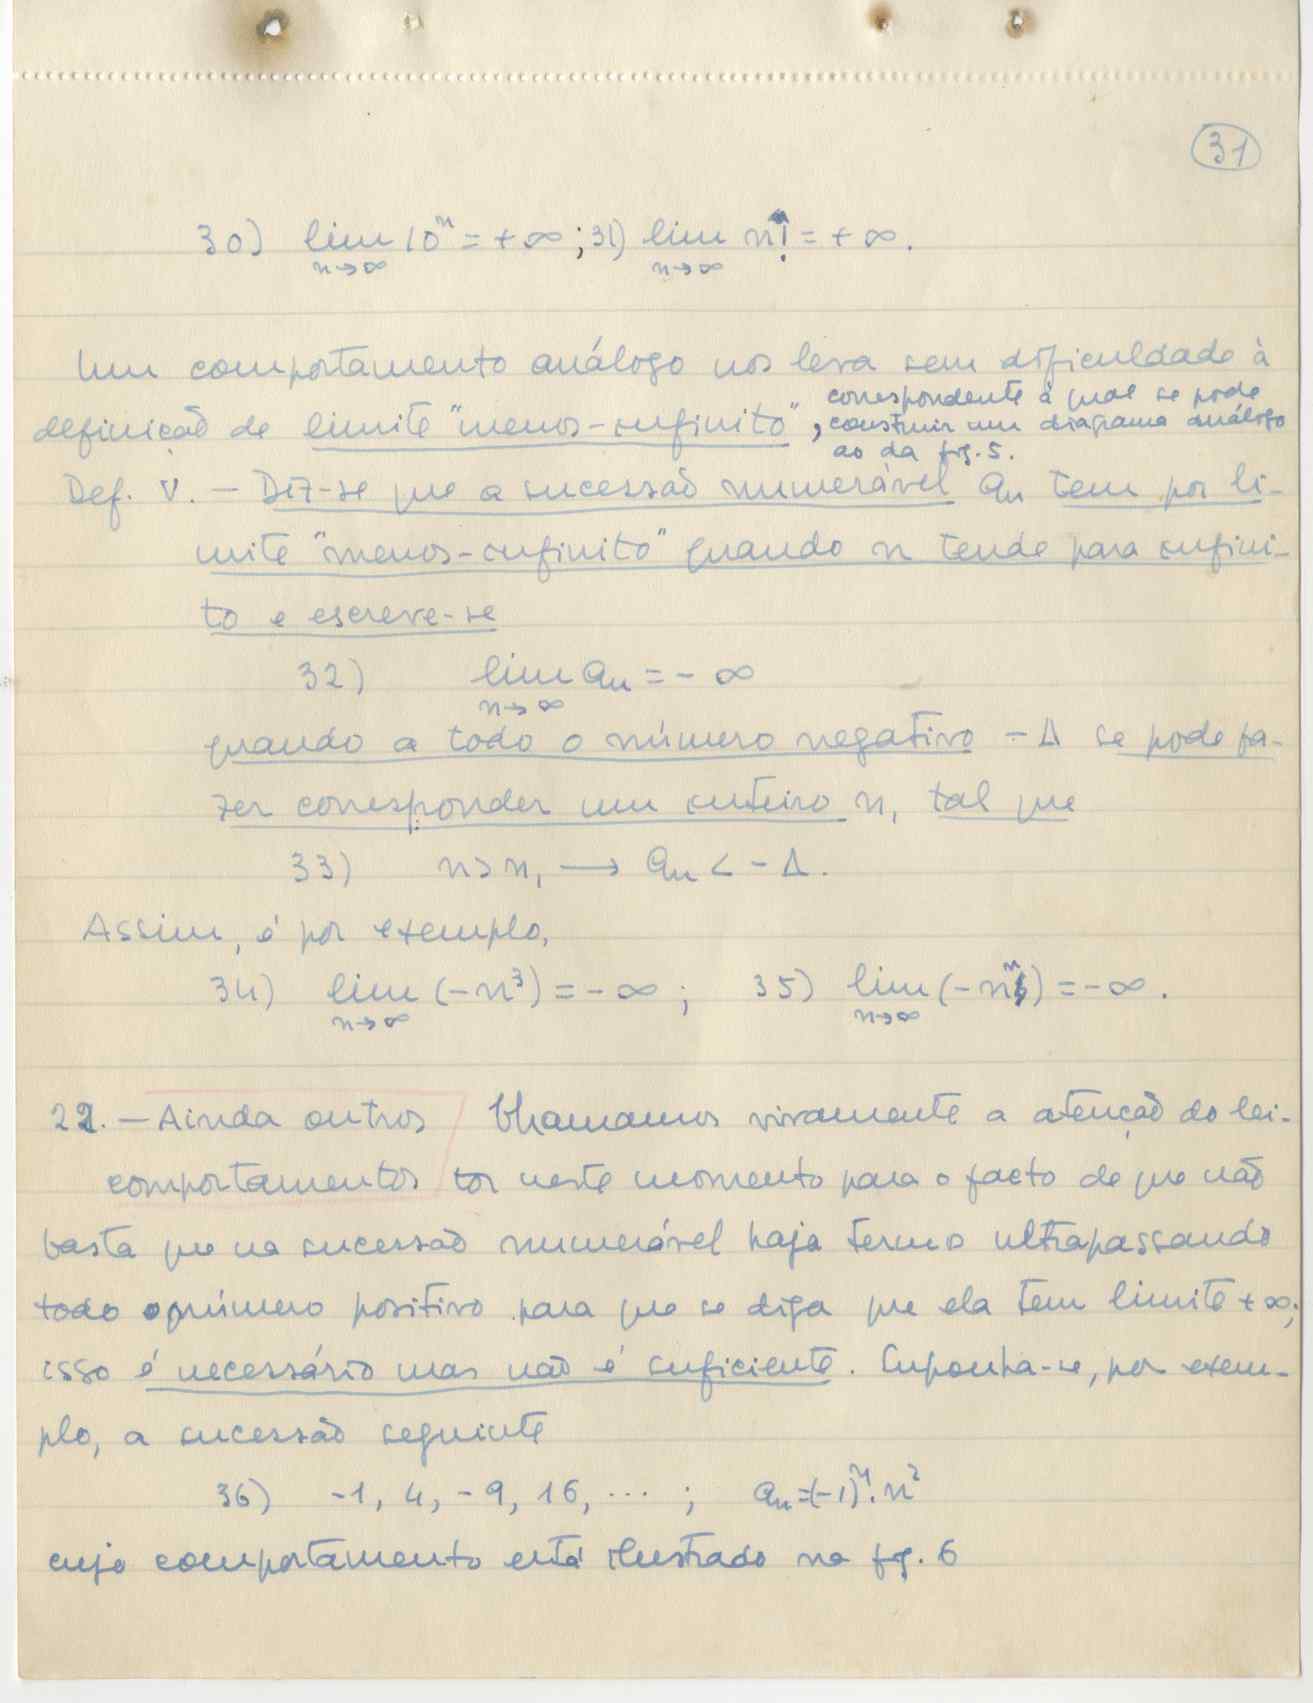 31
30) lim 10ⁿ = + ∞ ; 31) lim n! = + ∞.
n→∞ n→∞
Um comportamento análogo nos leva sem dificuldade à
definição de limite "menos-infinito", correspondente à qual se pode
construir um diagrama análogo
ao da fig. 5.
Def. V. — Diz-se que a sucessão numerável aₙ tem por li-
mite "menos-infinito" quando n tende para infini-
to e escreve-se
32) lim aₙ = - ∞
n→∞
quando a todo o número negativo - Δ se pode fa-
zer corresponder um inteiro n₁ tal que
33) n > n₁ ⟶ aₙ < - Δ.
Assim, é por exemplo,
34) lim (-n³) = - ∞ ; 35) lim (-nⁿ) = - ∞.
n→∞ n→∞
22. — Ainda outros Chamamos vivamente a atenção do lei-
comportamentos tor neste momento para o facto de que não
basta que na sucessão numerável haja termo ultrapassando
todo o número positivo para que se diga que ela tem limite + ∞;
isso é necessário mas não é suficiente. Suponha-se, por exem-
plo, a sucessão seguinte
36) -1, 4, -9, 16, ... ; aₙ = (-1)ⁿ. n²
cujo comportamento está ilustrado na fig. 6